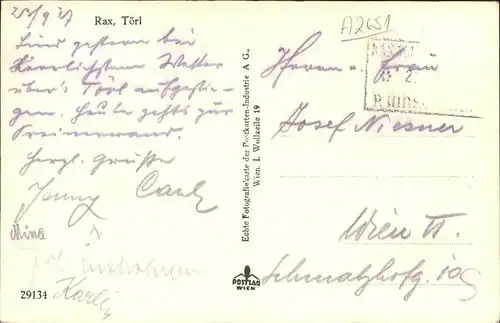 25/9 27
Rax, Törl
A2651
Sind gestern bei
herrlichstem Wetter
über's Törl aufgestie-
gen. Heute gehts zur
Preinerwand.
Herzl. Grüße
Jenny Carl
Mina
Karli
29134
Echte Fotografiekarte der Postkarten-Industrie A G.,
Wien, I. Wollzeile 19
POSTIAG
WIEN
Herrn u. Frau
Josef Niesner
Wien
Schmalzhofg. 10